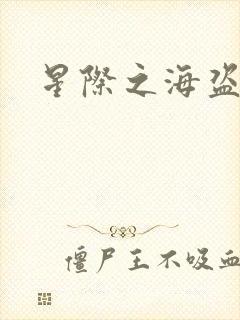 星際之海盜
僵尸王不吸血